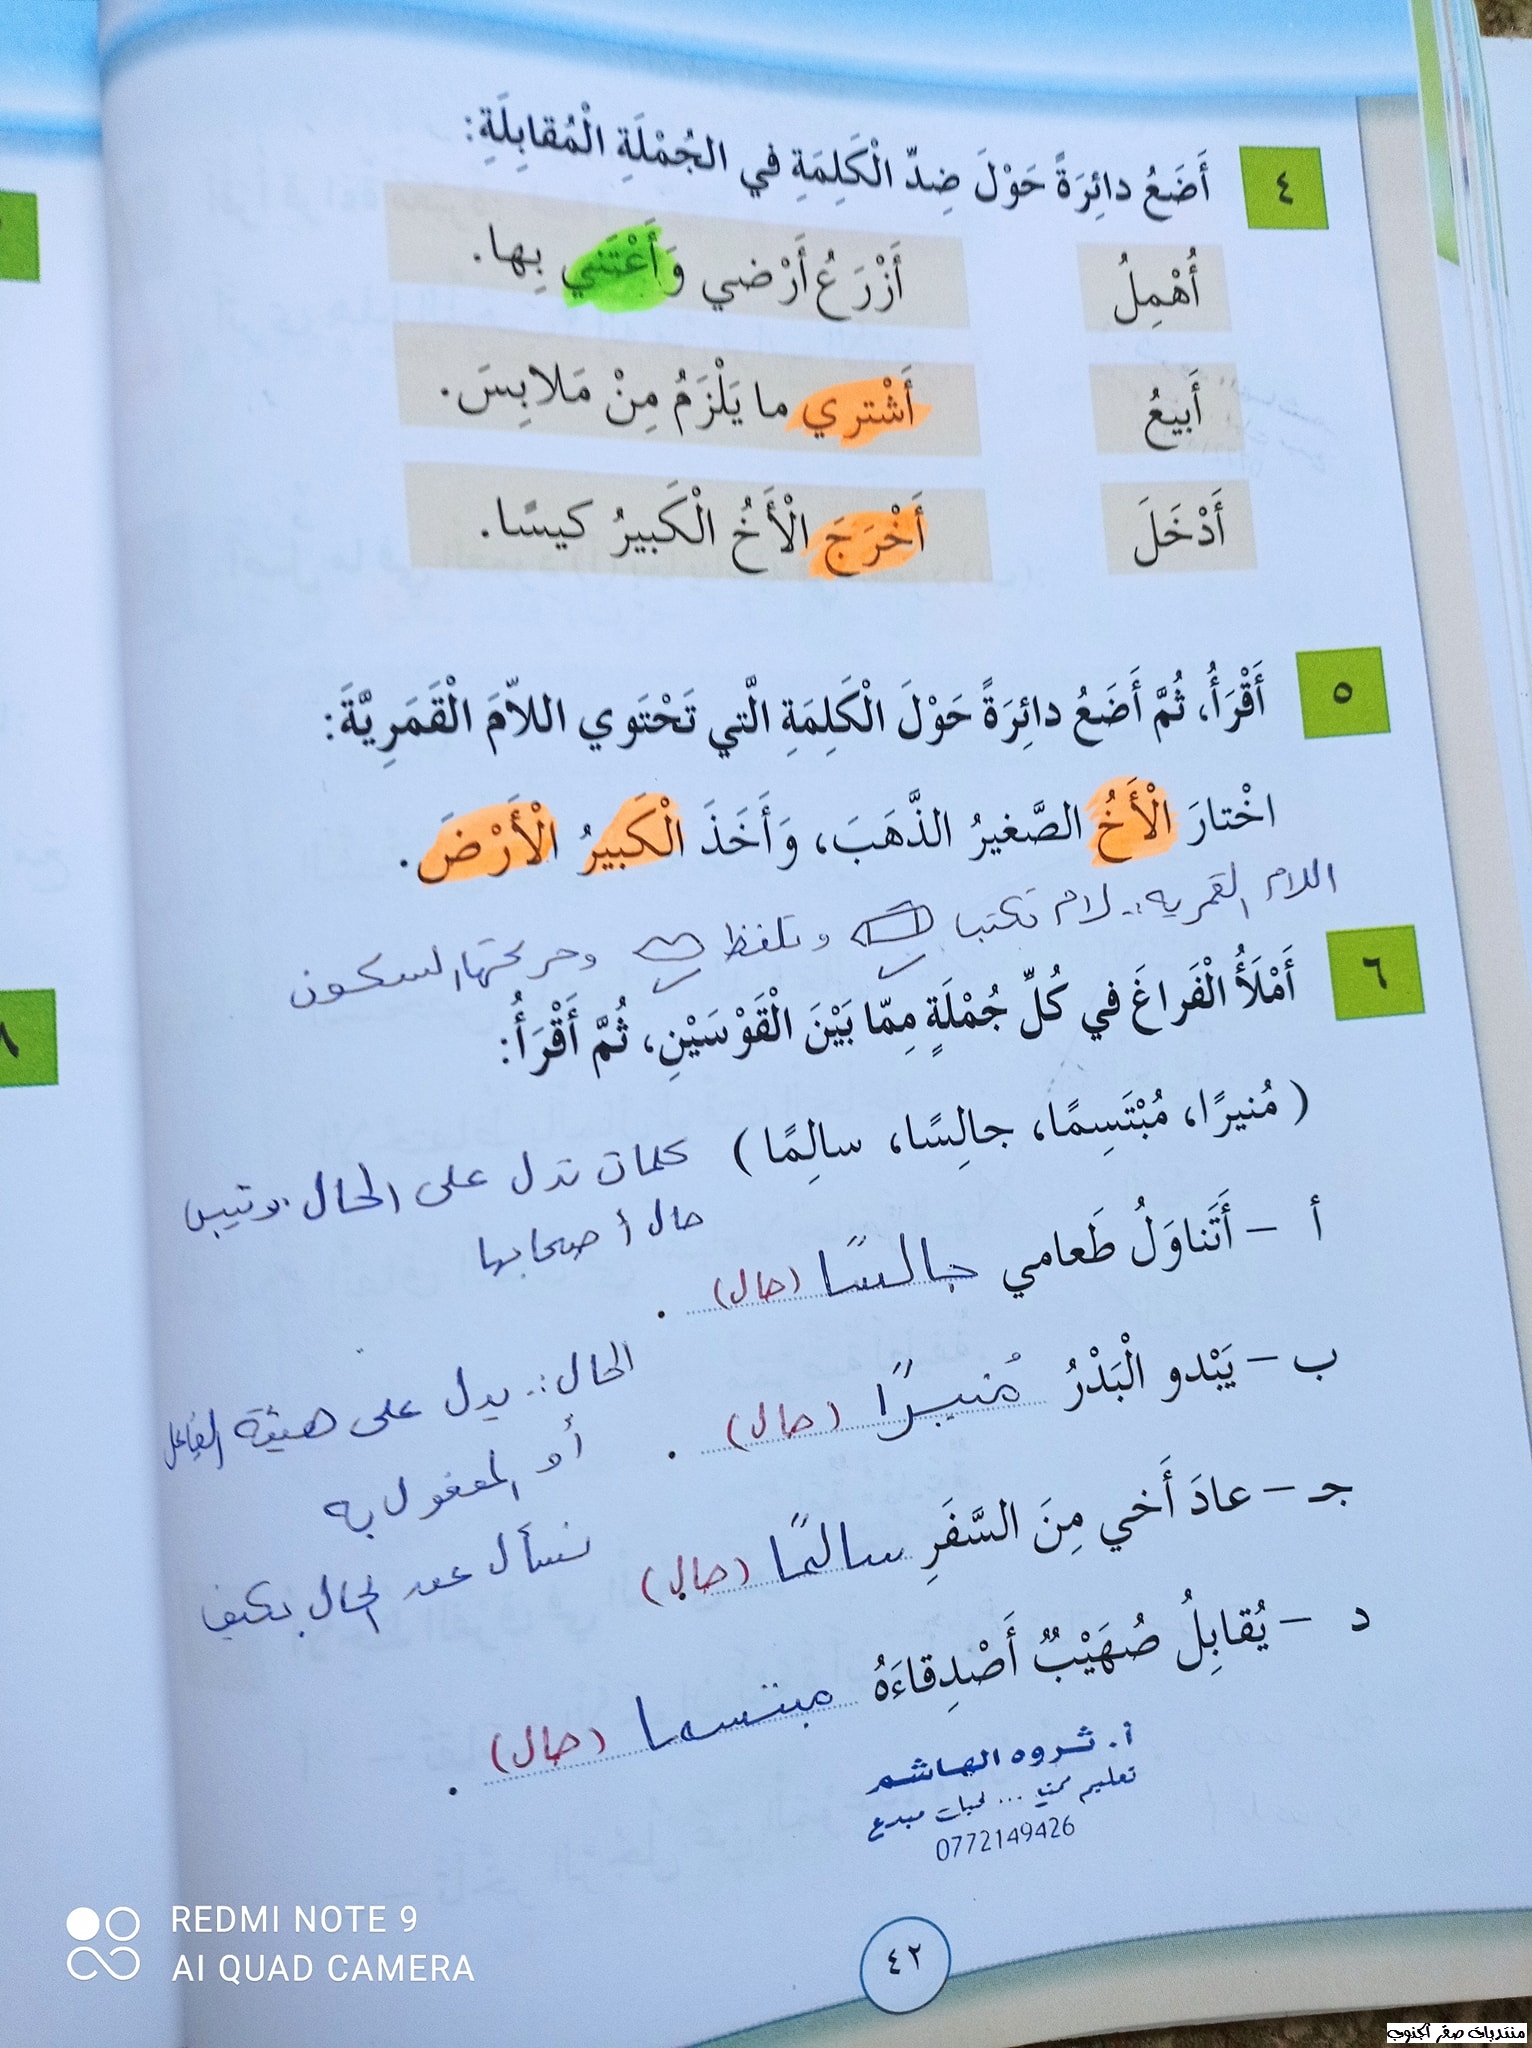 ٤
أَضَعُ دائِرَةً حَوْلَ ضِدِّ الْكَلِمَةِ في الجُمْلَةِ الْمُقابِلَةِ:
أُهْمِلُ أَزْرَعُ أَرْضي وَأَعْتَني بِها.
أَبيعُ أَشْتري ما يَلْزَمُ مِنْ مَلابِسَ.
أَدْخَلَ أَخْرَجَ الْأَخُ الْكَبيرُ كيسًا.
٥
أَقْرَأُ، ثُمَّ أَضَعُ دائِرَةً حَوْلَ الْكَلِمَةِ الَّتي تَحْتَوي اللاّمَ الْقَمَرِيَّةَ:
اخْتارَ الْأَخُ الصَّغيرُ الذَّهَبَ، وَأَخَذَ الْكَبيرُ الْأَرْضَ.
اللام القمرية:- لام تكتب وتلفظ وحركتها السكون
٦
أَمْلَأُ الْفَراغَ في كُلِّ جُمْلَةٍ مِمّا بَيْنَ الْقَوْسَيْنِ، ثُمَّ أَقْرَأُ:
(مُنيرًا، مُبْتَسِمًا، جالِسًا، سالِمًا) كلمات تدل على الحال وتبين
حال أصحابها
أ - أَتَناوَلُ طَعامي جالسًا (حال).
ب - يَبْدو الْبَدْرُ مُنيرًا (حال).
الحال:- يدل على هيئة الفاعل
أو المفعول به
جـ - عادَ أَخي مِنَ السَّفَرِ سالمًا (حال)
نسأل عن الحال بكيف
د - يُقابِلُ صُهَيْبٌ أَصْدِقاءَهُ مبتسما (حال).
أ. ثروه الهاشم
تعليم ... مبدع
0772149426
٤٢
٨
REDMI NOTE 9
AI QUAD CAMERA
منتديات صقر الجنوب